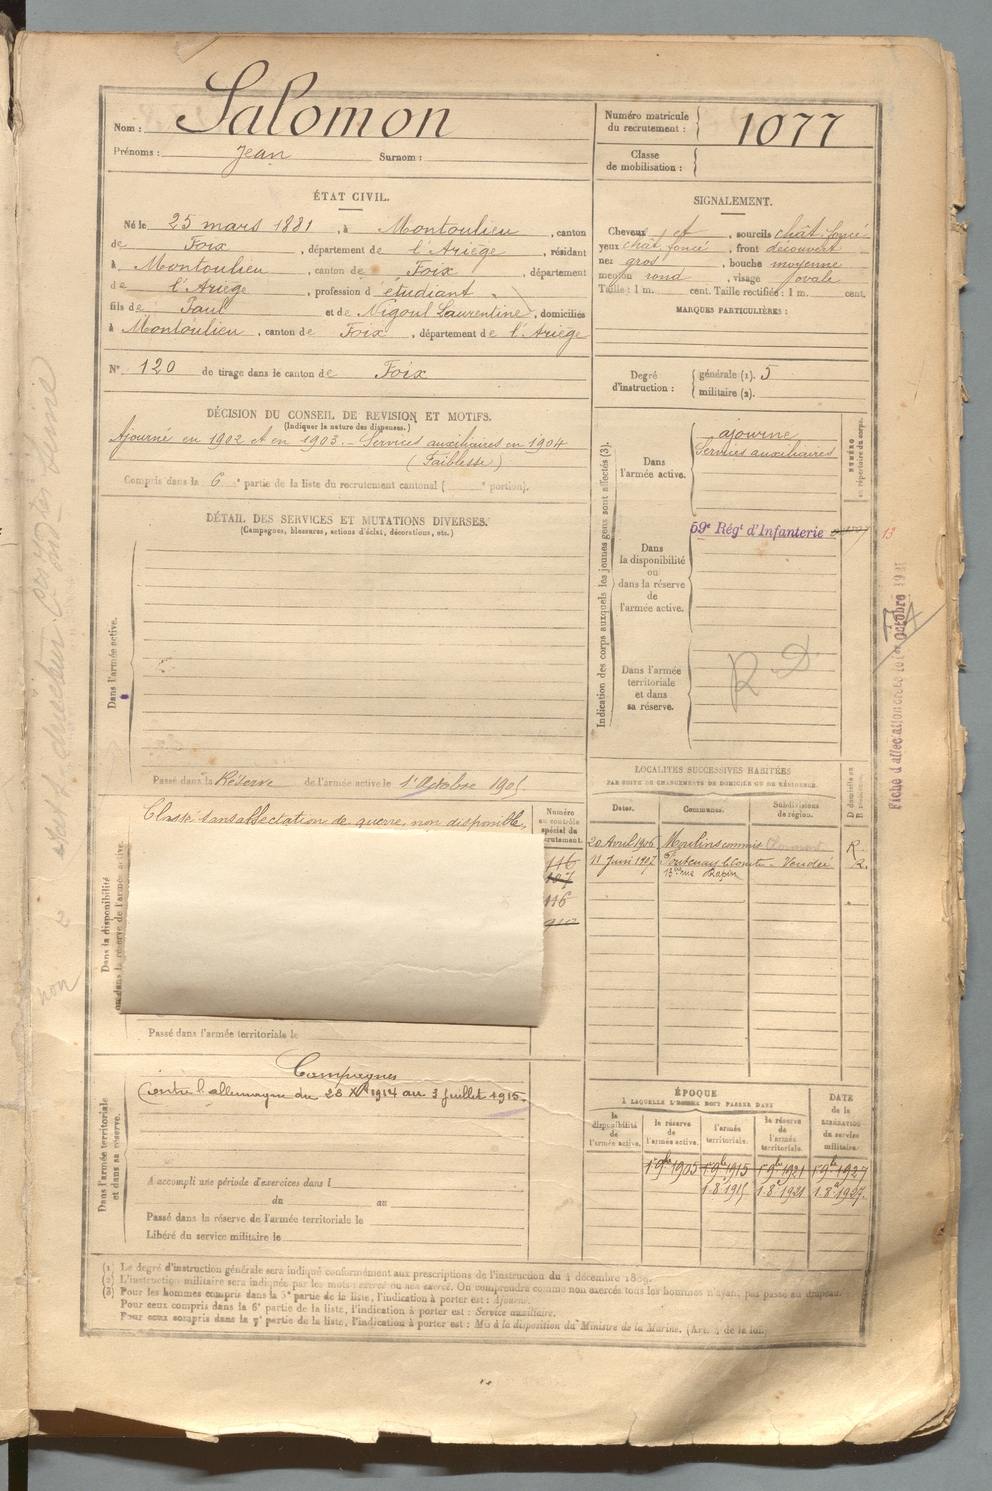 Nom : Salomon
Prénoms : Jean Surnom :
Numéro matricule du recrutement : 1077
Classe de mobilisation :
ÉTAT CIVIL.
Né le 25 mars 1881, à Montoulieu, canton
de Foix, département de l'Ariège, résidant
à Montoulieu, canton de Foix, département
de l'Ariège, profession d'étudiant
fils de Paul et de Nigoul Laurentine, domiciliés
à Montoulieu, canton de Foix, département de l'Ariège
N° 120 de tirage dans le canton de Foix
SIGNALEMENT.
Cheveux et, sourcils chât foncé
yeux chât foncé, front découvert
nez gros, bouche moyenne
menton rond, visage ovale
Taille : 1 m. cent. Taille rectifiée : 1 m. cent.
MARQUES PARTICULIÈRES :
Degré d'instruction : générale (1). 5
militaire (2).
DÉCISION DU CONSEIL DE REVISION ET MOTIFS.
(Indiquer la nature des dispenses.)
Ajourné en 1902 et en 1903. - Services auxiliaires en 1904
(Faiblesse)
Compris dans la 6e partie de la liste du recrutement cantonal ( e portion).
DÉTAIL DES SERVICES ET MUTATIONS DIVERSES.
(Campagnes, blessures, actions d'éclat, décorations, etc.)
Dans l'armée active.
Passé dans la Réserve de l'armée active le 1er Octobre 1905
Indication des corps auxquels les jeunes gens sont affectés (3).
Dans l'armée active.
ajourné
Services auxiliaires
NUMÉRO au répertoire du corps.
Dans la disponibilité ou dans la réserve de l'armée active.
59e Régt d'Infanterie
13
Dans l'armée territoriale et dans sa réserve.
R D
Fiche d'affectation
Octobre
Classé sans affectation de guerre, non disponible,
Dans la disponibilité
ou dans la réserve de l'armée active.
Numéro au contrôle spécial du recrutement.
116
107
116
Passé dans l'armée territoriale le
LOCALITÉS SUCCESSIVES HABITÉES
PAR SUITE DE CHANGEMENTS DE DOMICILE OU DE RÉSIDENCE.
Dates. Communes. Subdivisions de région. D domicile ou R résidence.
20 Avril 1906 Moulins commis R.
11 Juin 1907 Fontenay le Comte - Vendée R.
13 rue Rapin
Campagnes
Contre l'allemagne du 28 Xbre 1914 au 3 juillet 1915.
Dans l'armée territoriale et dans sa réserve.
A accompli une période d'exercices dans l
du au
Passé dans la réserve de l'armée territoriale le
Libéré du service militaire le
ÉPOQUE
À LAQUELLE L'HOMME DOIT PASSER DANS
la disponibilité de l'armée active. la réserve de l'armée active. l'armée territoriale. la réserve de l'armée territoriale.
DATE de la LIBÉRATION du service militaire.
1er 9bre 1905 1er 9bre 1915 1er 9bre 1921 1er 9bre 1927
1.8e 1915 1.8e 1921 1.8e 1927.
(1) Le degré d'instruction générale sera indiqué conformément aux prescriptions de l'instruction du 4 décembre 1889.
(2) L'instruction militaire sera indiquée par les mots exercé ou non exercé. On comprendra comme non exercés tous les hommes n'ayant pas passé au drapeau.
(3) Pour les hommes compris dans la 5e partie de la liste, l'indication à porter est : Ajourné.
Pour ceux compris dans la 6e partie de la liste, l'indication à porter est : Service auxiliaire.
Pour ceux compris dans la 7e partie de la liste, l'indication à porter est : Mis à la disposition du Ministre de la Marine. (Art. 4 de la loi.)
non